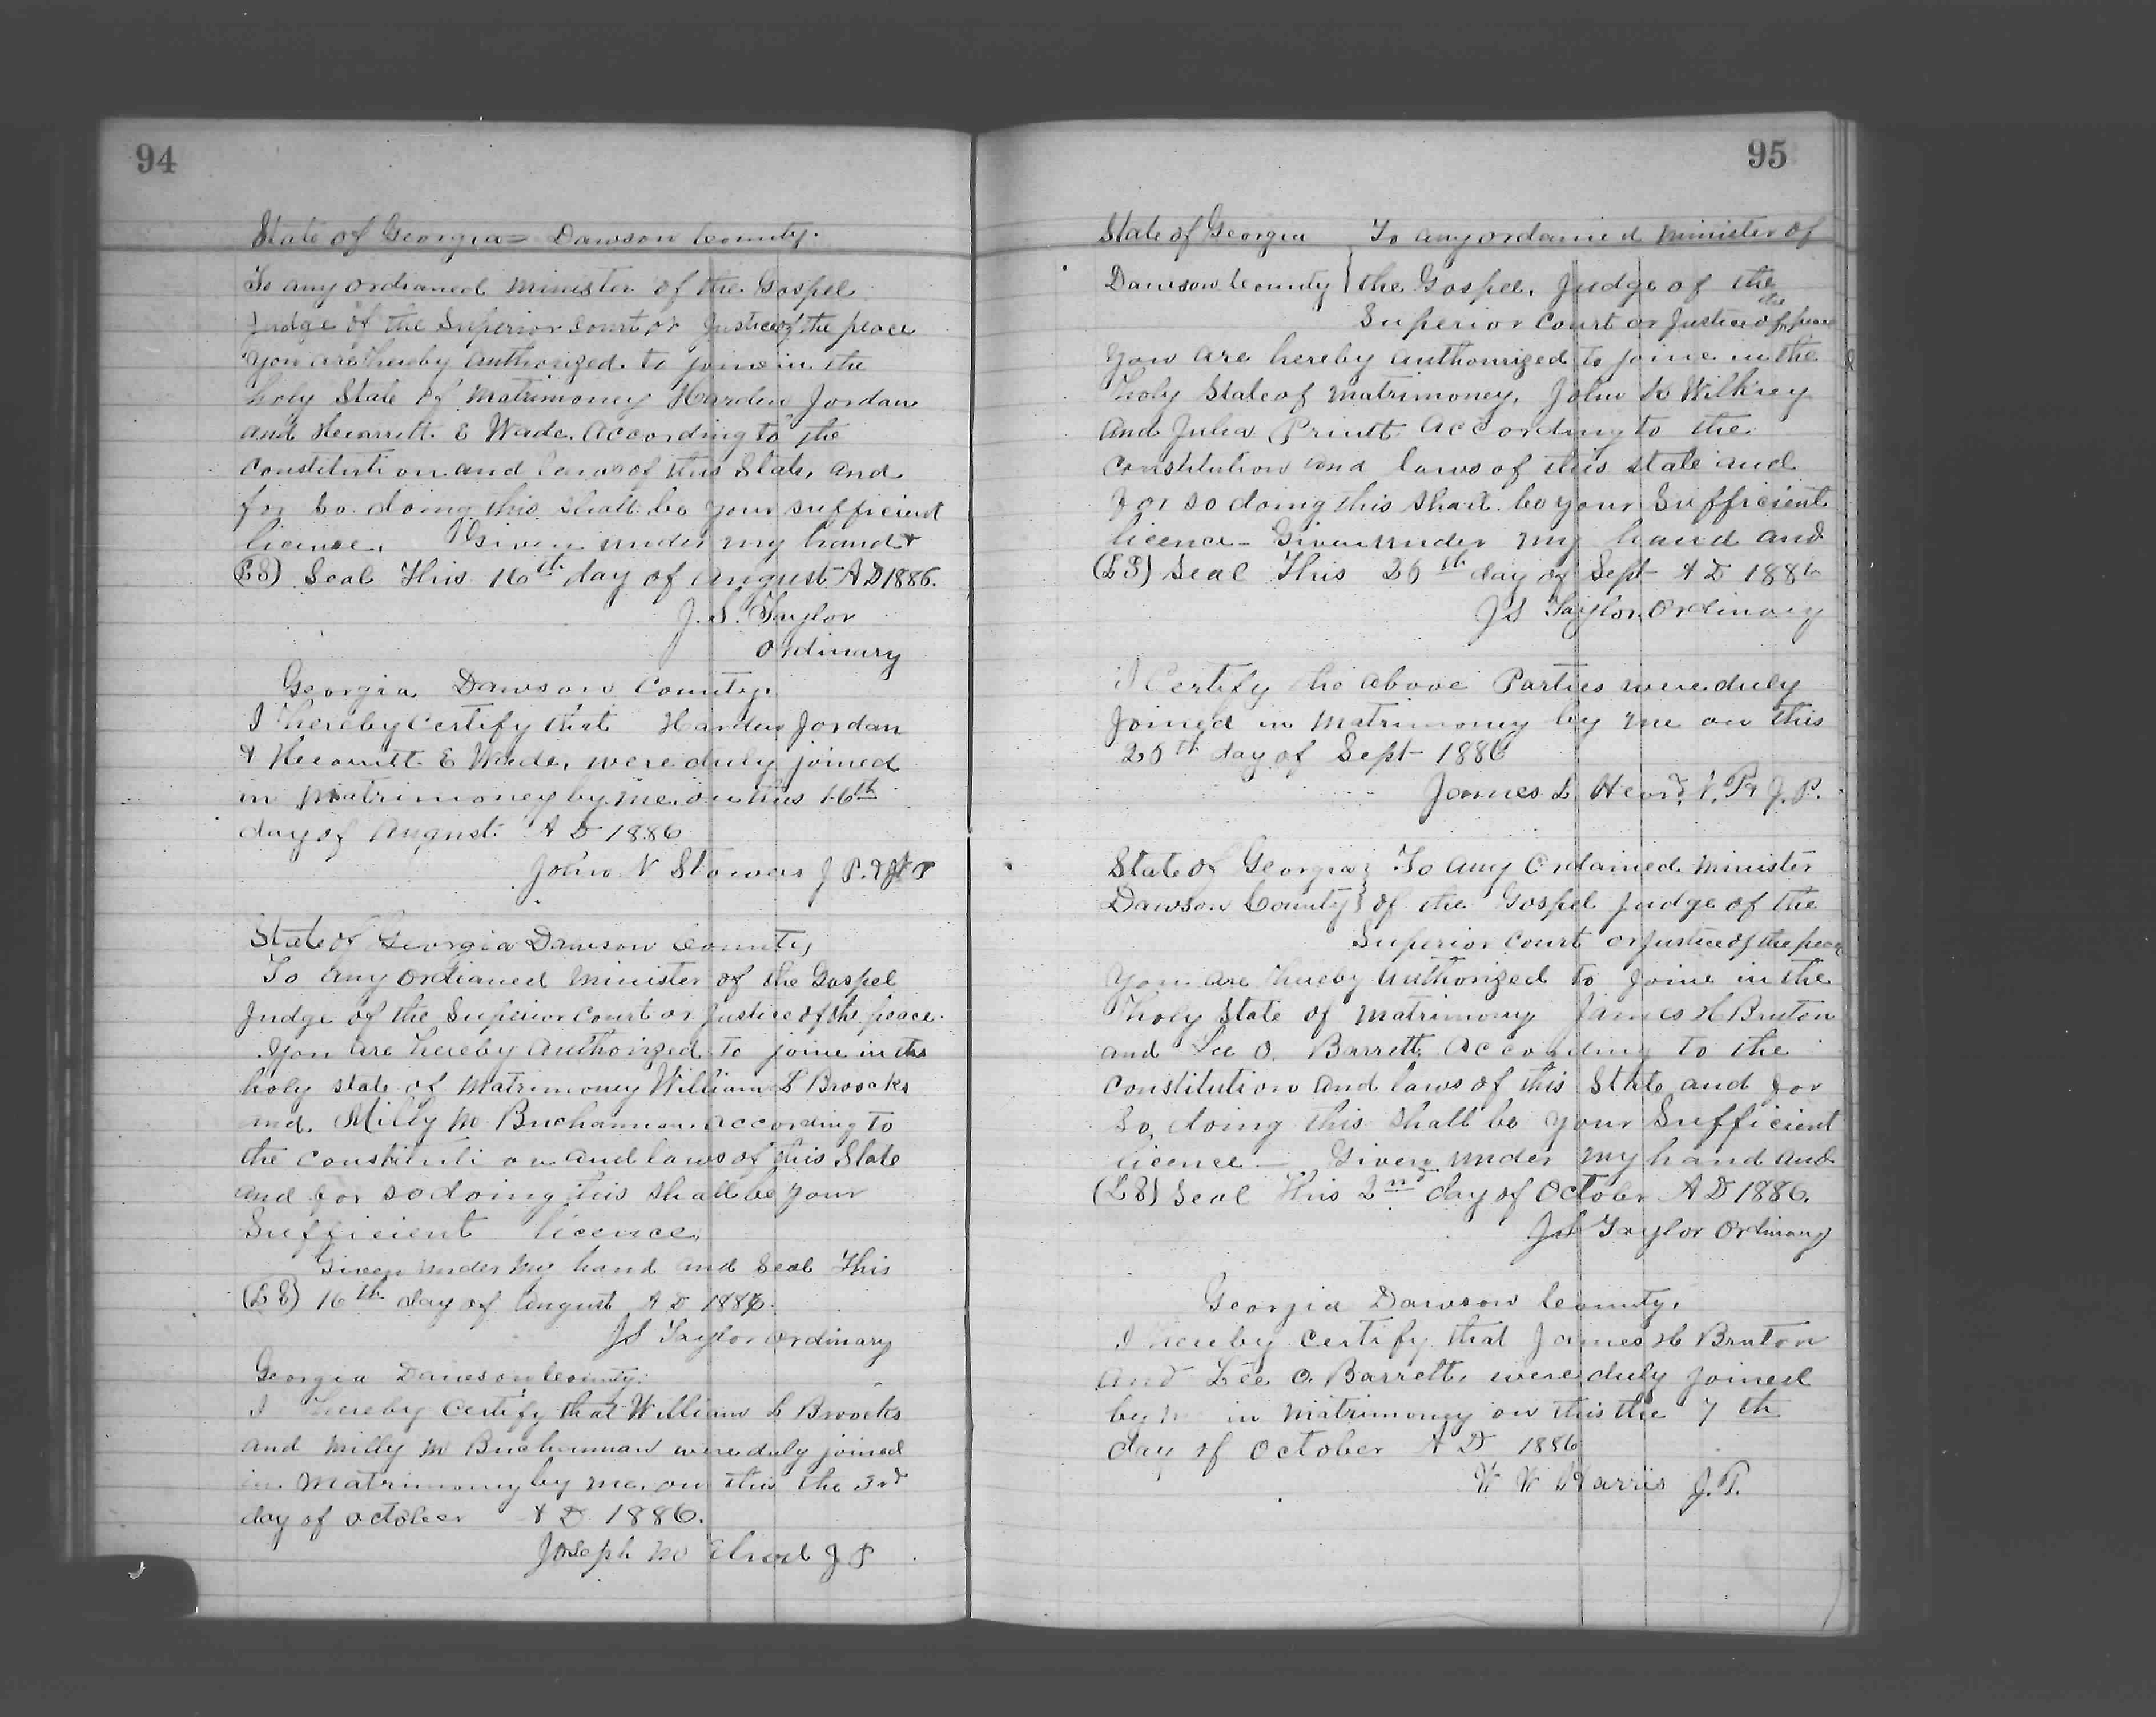 94
State of Georgia = Dawson County.
To any ordianed minister of the Gospel
Judge of the Superior Court or Justice of the peace
you are hereby authorized to joine in the
holy State of Matrimoney Harden Jordan
and E Wade. According to the
Constitution and laws of this State, and
for so doing this shall be your sufficient
license. Given under my hand &
(LS) Seal This 16th day of August A D 1886.
J. S. Taylor
Ordinary
Georgia Dawson County.
I hereby certify that Harden Jordan
& E Wade, were duly joined
in Matrimoney by me on this 16th
day of August A D 1886
John N Stowers J P. &
State of Georgia Dawson County
To any ordianed minister of the Gospel
Judge of the Superior Court or Justice of the peace.
You are hereby authorized to joine in the
holy state of Matrimoney William L Broocks
and Milly M Buchannan. according to
the constitution and laws of this State
and for so doing this shall be your
Sufficient licence,
Given under my hand and Seal This
(LS) 16th day of August A D 1886.
JS Taylor ordinary
Georgia Dawson County.
I hereby certify that William L Broocks
and Milly M Buchannan were duly joined
in Matrimoney by me, on this the 3rd
day of october A D 1886.
Joseph M Elrod J P
95
State of Georgia To any ordained minister of
Dawson County } the Gospel, Judge of the
Superior Court or Justice of the peace
you are hereby authourized to joine in the
holy State of matrimoney, John K Wilkiey
and Julia Pruitt According to the
constitution and laws of this state and
for so doing this shall be your Sufficient
licence - Given under my hand and
(LS) Seal This 26th day of Sept A D 1886
JS Taylor Ordinary
I Certify the above Parties were duly
joined in matrimoney by me on this
26th day of Sept 1886
James L Heard, N. P. & J. P.
State of Georgia } To any Ordained minister
Dawson County } of the Gospel Judge of the
Superior Court or Justice of the peace
you are hereby authorized to joine in the
holy State of matrimony James H Bruton
and Lee O. Barrett, According to the
constitution and laws of this State and for
so, doing this shall be your Sufficient
licence - Given under my hand and
(LS) Seal This 2nd day of October A D 1886.
JS Taylor Ordinary
Georgia Dawson County.
I hereby certify that James H Bruton
and Lee O. Barrett, were duly joined
by in matrimoney on this the 7th
day of October A D 1886
W W Harris J.P.